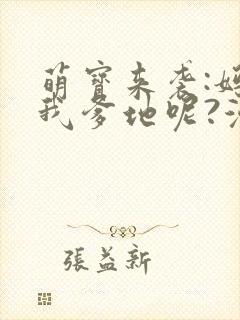 萌寶来袭:
我爹地呢?
張益新